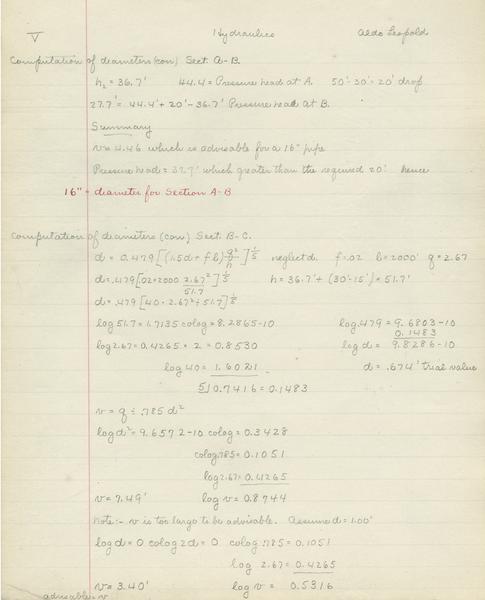 V Hydraulics Aldo Leopold
Computation of diameters (con) Sect. A-B.
h₂ = 36.7' 44.4 = Pressure head at A. 50'-30' = 20' drop
27.7' = 44.4' + 20' - 36.7' Pressure head at B.
Summary
v = 4.46 which is advisable for a 16" pipe
Pressure head = 27.7' which greater than the required 20' hence
16" = diameter for Section A-B.
Computation of diameters (con) Sect. B-C.
d = 0.479 [(1.5d + fl) q²/h]^1/5 neglect d. f = .02 l = 2000' q = 2.67
d = .479 [.02 × 2000 2.67²/51.7]^1/5 h = 36.7' + (30'-15') = 51.7'
d = .479 [40 · 2.67² ÷ 51.7]^1/5
log 51.7 = 1.7135 colog = 8.2865-10 log .479 = 9.6803-10
0.1483
log 2.67 = 0.4265 × 2 = 0.8530 log d = 9.8286-10
log 40 = 1.6021 d = .674' trial value
5)0.7416 = 0.1483
v = q ÷ .785 d²
log d² = 9.6572-10 colog = 0.3428
colog .785 = 0.1051
log 2.67 = 0.4265
v = 7.49' log v = 0.8744
Note:- v is too large to be advisable. Assume d = 1.00'
log d = 0 colog 2d = 0 colog .785 = 0.1051
log 2.67 = 0.4265
v = 3.40' log v = 0.5316
advisable v